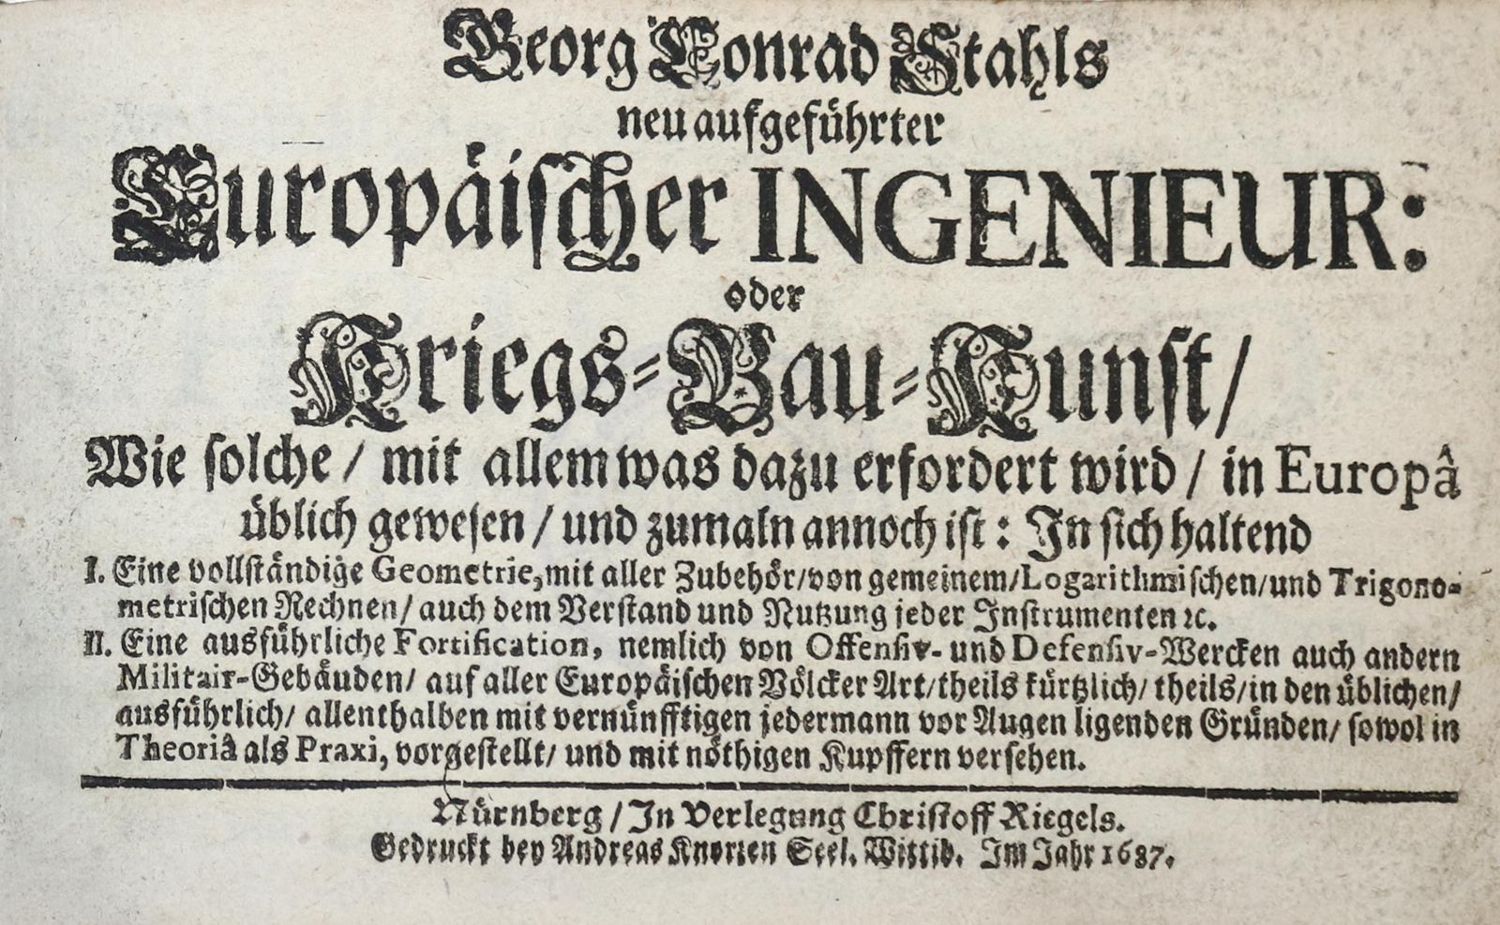 Georg Conrad Stahls
neu aufgeführter
Europäischer INGENIEUR:
oder
Kriegs-Bau-Kunst/
Wie solche / mit allem was dazu erfordert wird / in Europâ
üblich gewesen / und zumaln annoch ist: In sich haltend
I. Eine vollständige Geometrie, mit aller Zubehör/von gemeinem/Logarithmischen/und Trigono-
metrischen Rechnen/ auch dem Verstand und Nutzung jeder Instrumenten ꝛc.
II. Eine ausführliche Fortification, nemlich von Offensiv- und Defensiv-Wercken auch andern
Militair-Gebäuden/ auf aller Europäischen Völcker Art/theils kürtzlich/ theils/in den üblichen/
ausführlich/ allenthalben mit vernünfftigen jedermann vor Augen ligenden Gründen/ sowol in
Theoriâ als Praxi, vorgestellt/ und mit nöthigen Kupffern versehen.
Nürnberg / In Verlegung Christoff Riegels.
Gedruckt bey Andreas Knorzen Seel. Wittib. Im Jahr 1687.